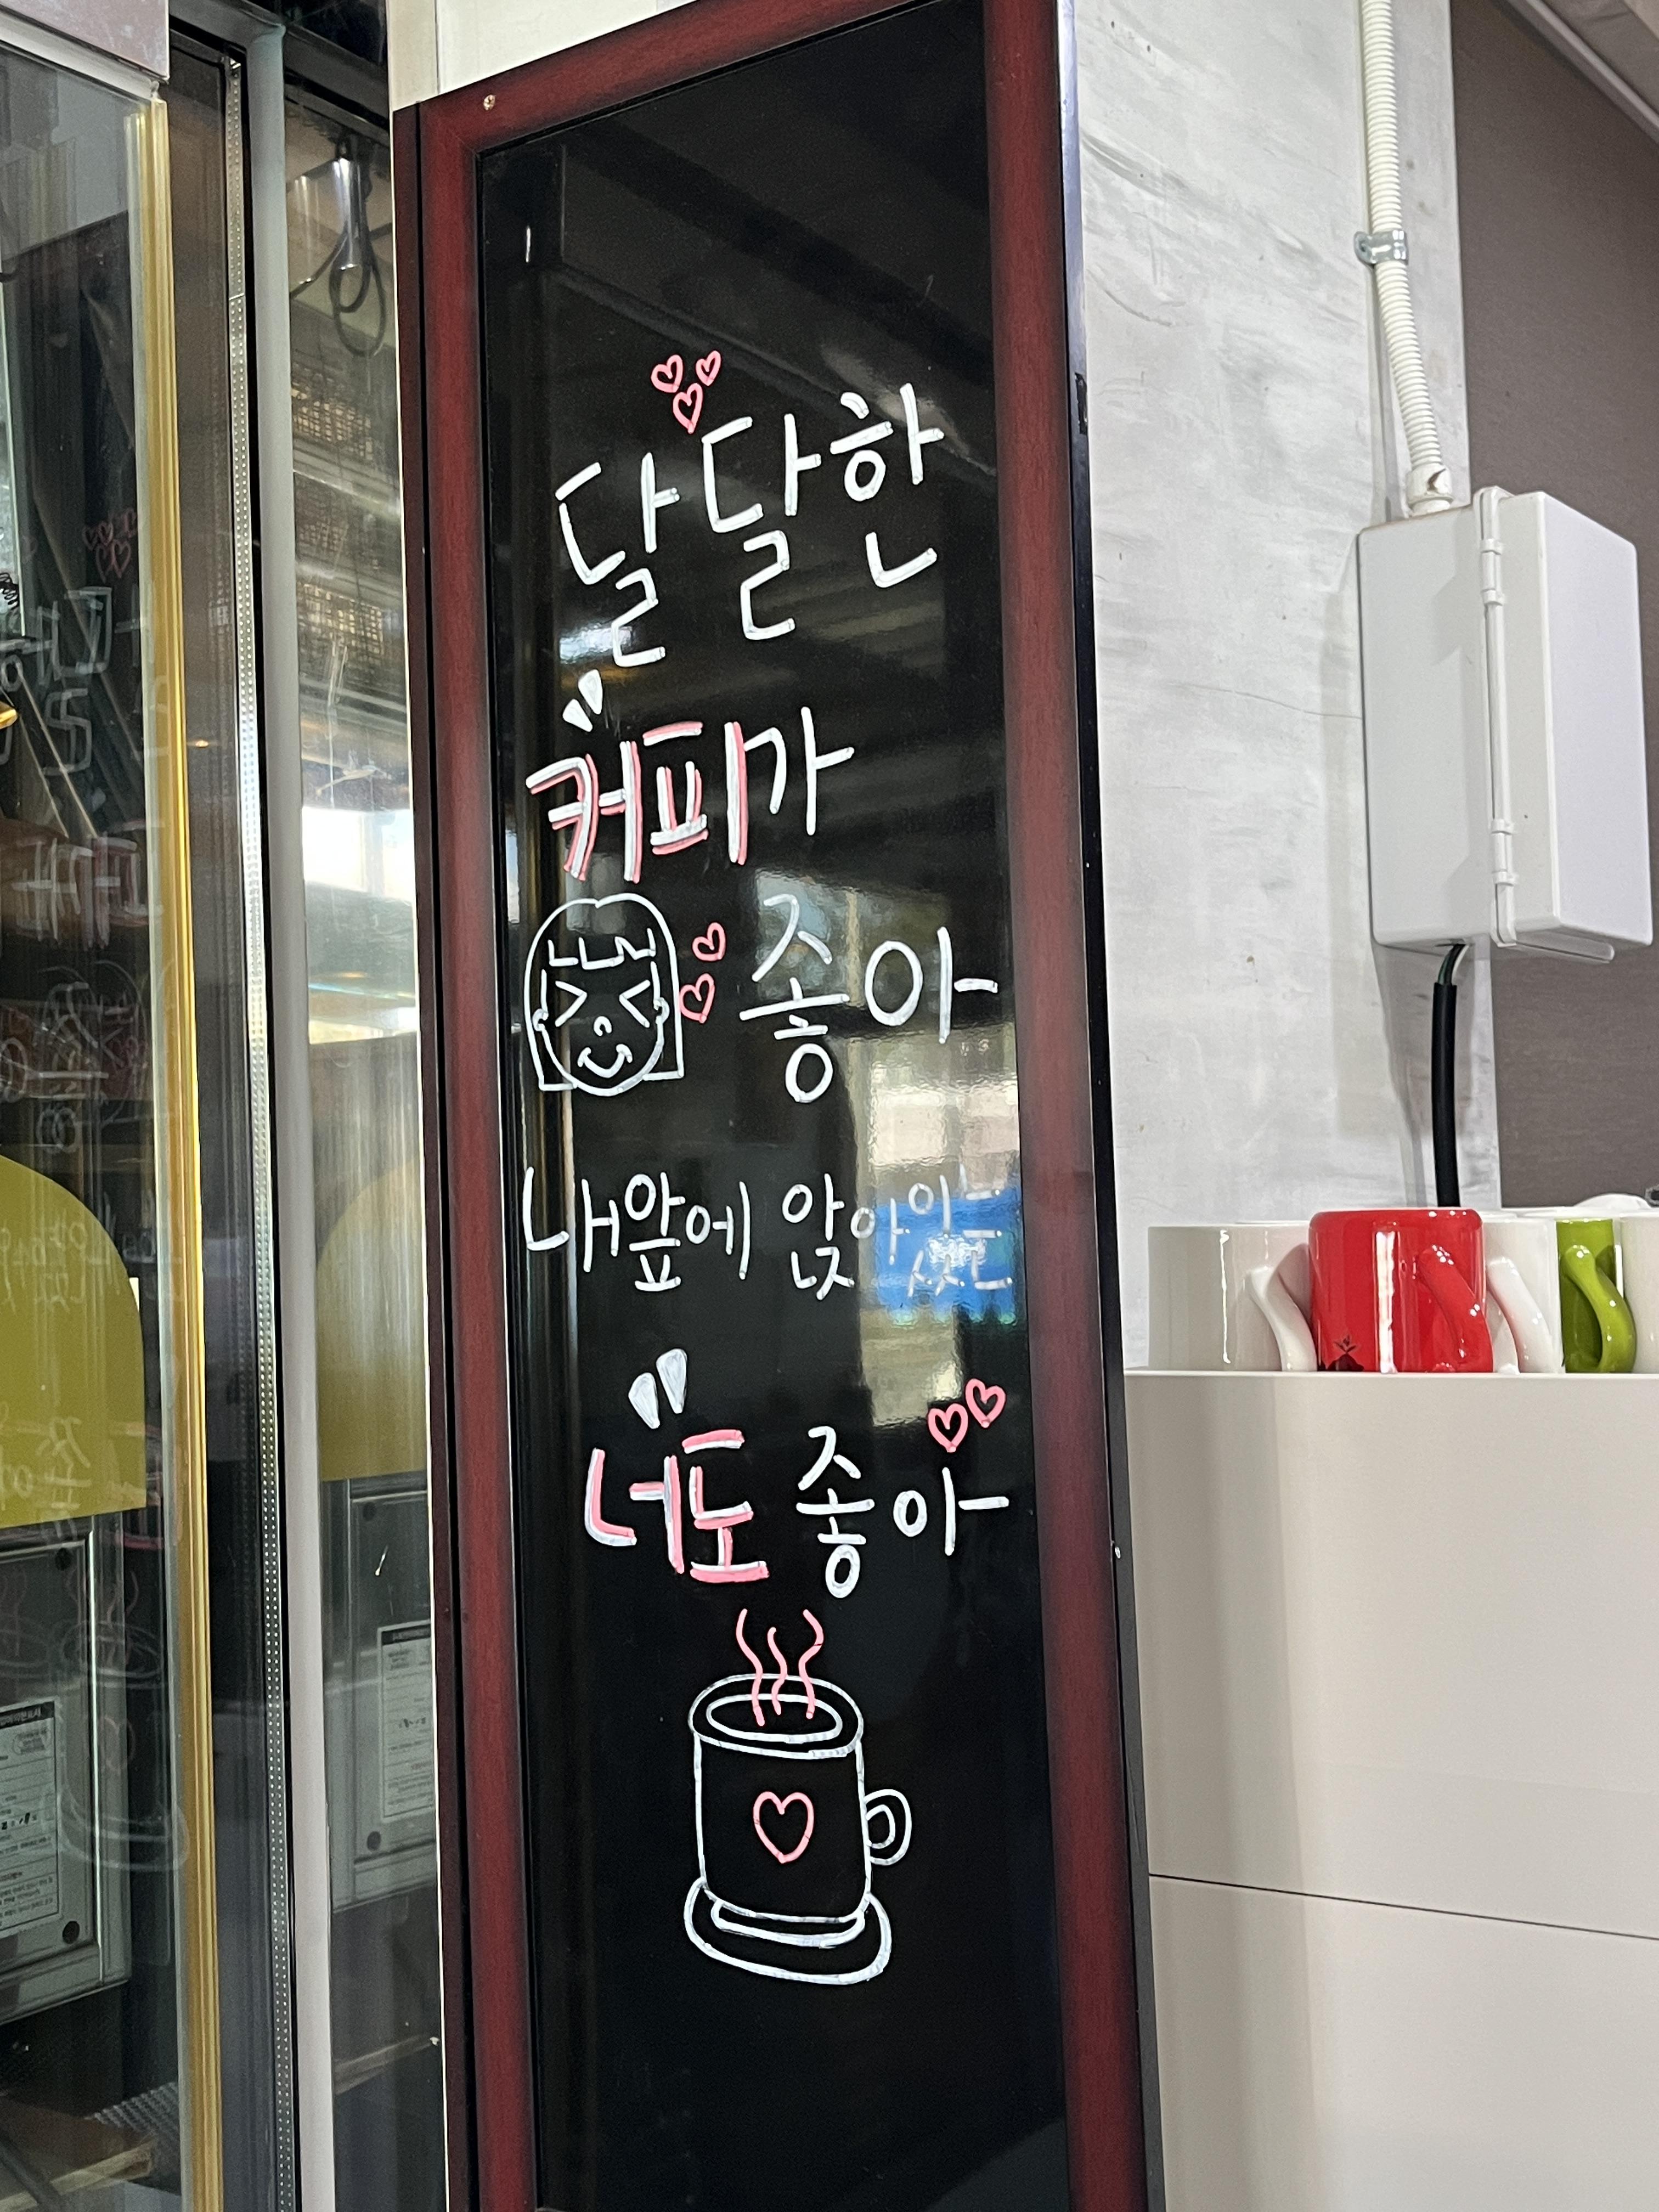 달달한
커피가
좋아
내앞에 앉아있는
너도 좋아